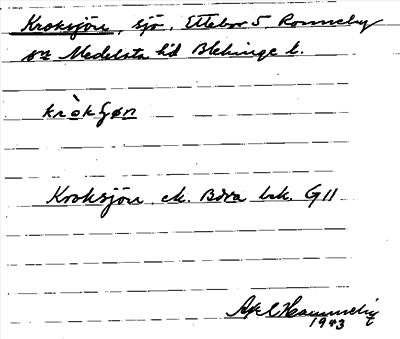 Kroksjön, sjö, Ettebro 5, Ronneby
sn Medelsta hd Blekinge l.
kròkʃøn
Kroksjön ek. Böra bek. G11
Axel Hammeby
1943